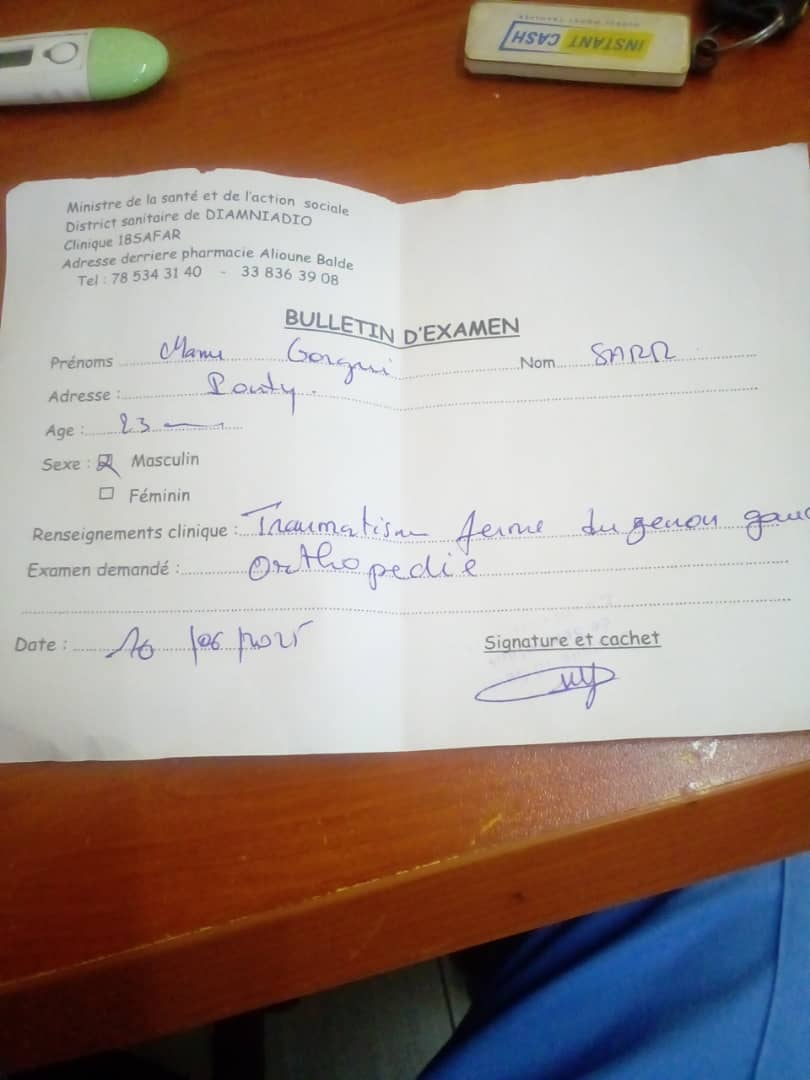 INSTANT CASH
Ministre de la santé et de l'action sociale
District sanitaire de DIAMNIADIO
Clinique 18SAFAR
Adresse derriere pharmacie Alioune Balde
Tel : 78 534 31 40 - 33 836 39 08
BULLETIN D'EXAMEN
Prénoms Mame Gorgui Nom SARR
Adresse : Pouty.
Age : 23
Sexe : Masculin
Féminin
Renseignements clinique : Traumatisme fermé du genou gauc
Examen demandé : Orthopedie
Date : 10/06/2025 Signature et cachet